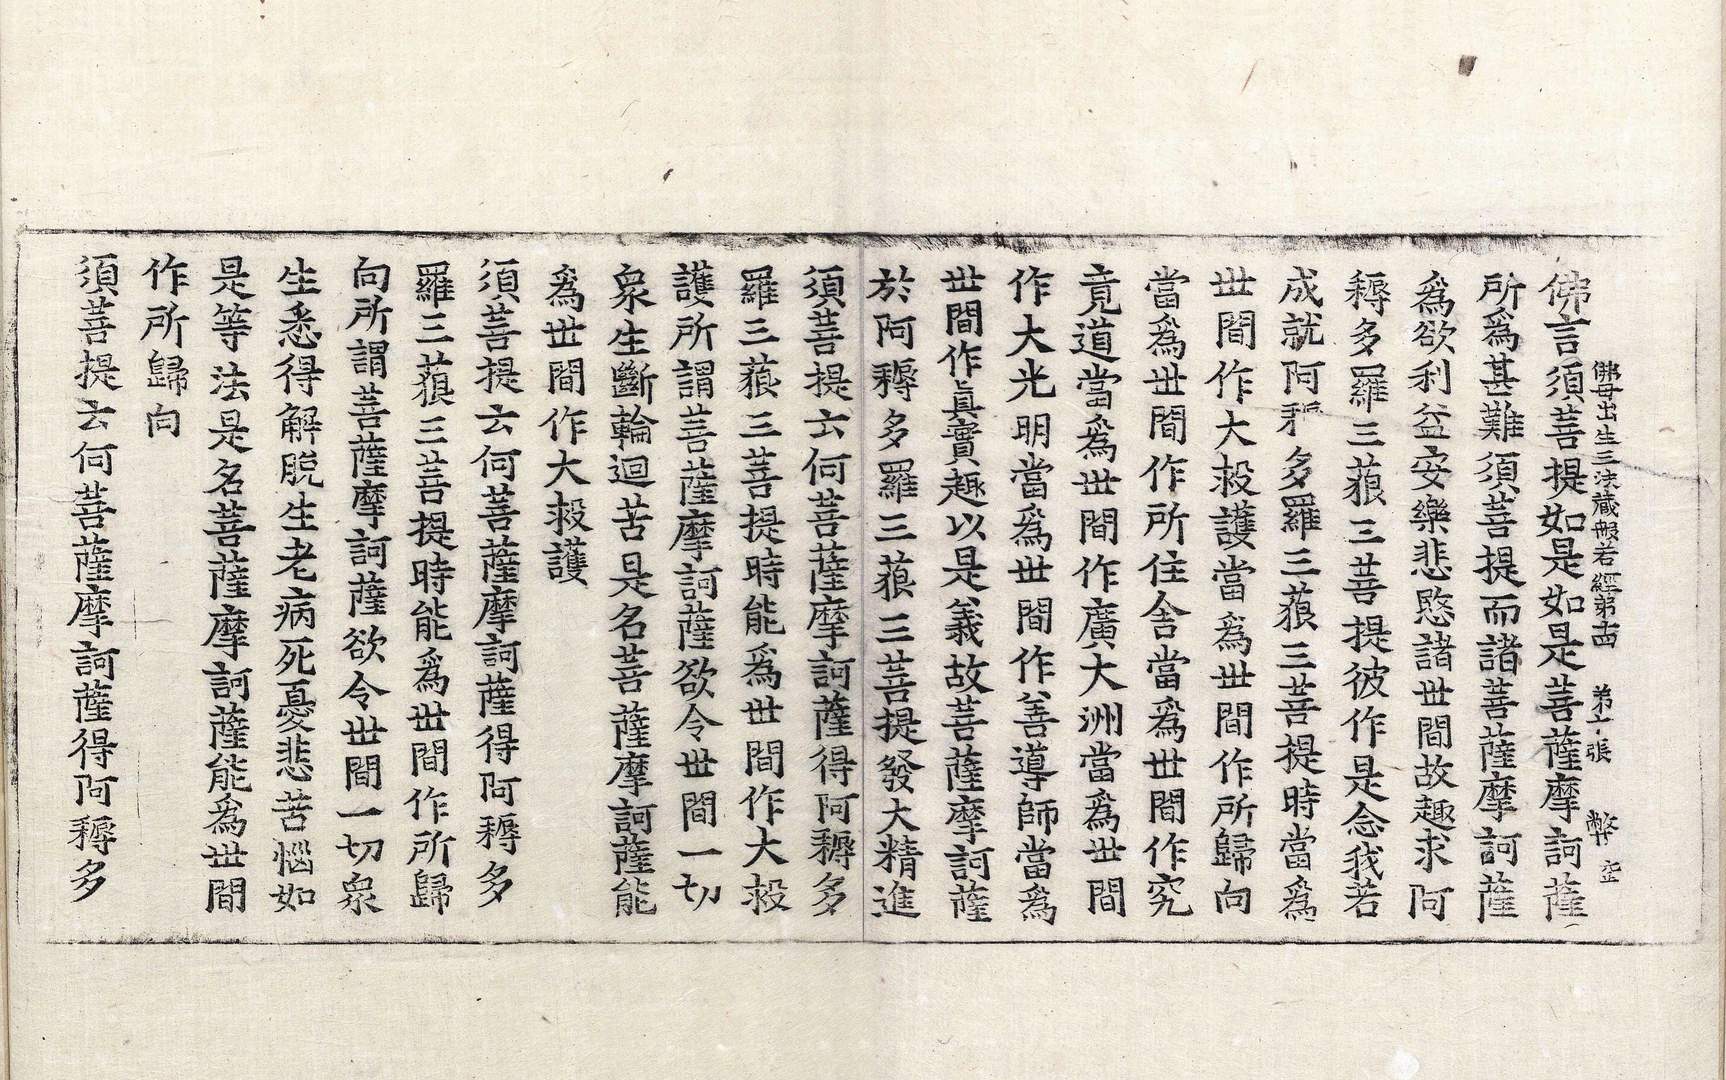 佛母出生三法藏般若經第十四 第張 弊
佛言須菩提如是如是菩薩摩訶薩
所爲甚難須菩提而諸菩薩摩訶薩
爲欲利益安樂悲愍諸世間故趣求阿
耨多羅三藐三菩提彼作是念我若
成就阿耨多羅三藐三菩提時當爲
世間作大救護當爲世間作所歸向
當爲世間作所住舍當爲世間作究
竟道當爲世間作廣大洲當爲世間
作大光明當爲世間作善導師當爲
世間作眞實趣以是義故菩薩摩訶薩
於阿耨多羅三藐三菩提發大精進
須菩提云何菩薩摩訶薩得阿耨多
羅三藐三菩提時能爲世間作大救
護所謂菩薩摩訶薩欲令世間一切
衆生斷輪迴苦是名菩薩摩訶薩能
爲世間作大救護
須菩提云何菩薩摩訶薩得阿耨多
羅三藐三菩提時能爲世間作所歸
向所謂菩薩摩訶薩欲令世間一切衆
生悉得解脫生老病死憂悲苦惱如
是等法是名菩薩摩訶薩能爲世間
作所歸向
須菩提云何菩薩摩訶薩得阿耨多